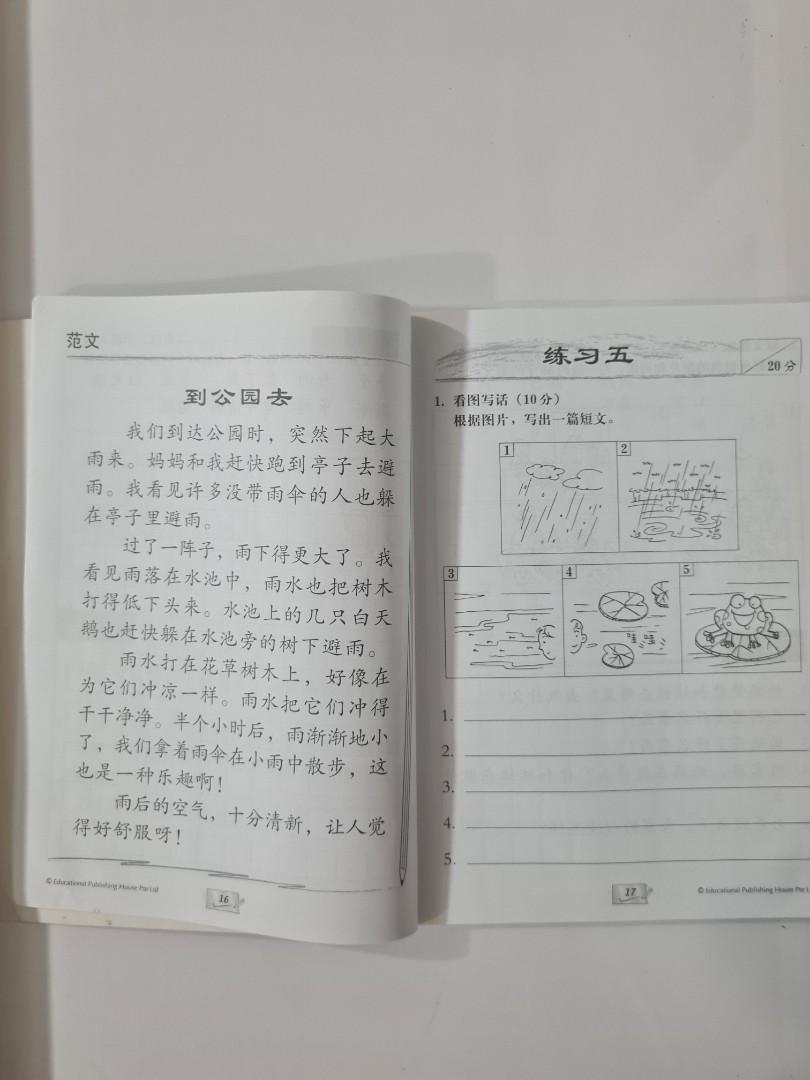 范文
到公园去
我们到达公园时，突然下起大
雨来。妈妈和我赶快跑到亭子去避
雨。我看见许多没带雨伞的人也躲
在亭子里避雨。
过了一阵子，雨下得更大了。我
看见雨落在水池中，雨水也把树木
打得低下头来。水池上的几只白天
鹅也赶快躲在水池旁的树下避雨。
雨水打在花草树木上，好像在
为它们冲凉一样。雨水把它们冲得
干干净净。半个小时后，雨渐渐地小
了，我们拿着雨伞在小雨中散步，这
也是一种乐趣啊！
雨后的空气，十分清新，让人觉
得好舒服呀！
© Educational Publishing House Pte Ltd
16
练习五
20 分
1. 看图写话（10 分）
根据图片，写出一篇短文。
1
2
3
4
哇 哇
5
1.
2.
3.
4.
5.
17
© Educational Publishing House Pte